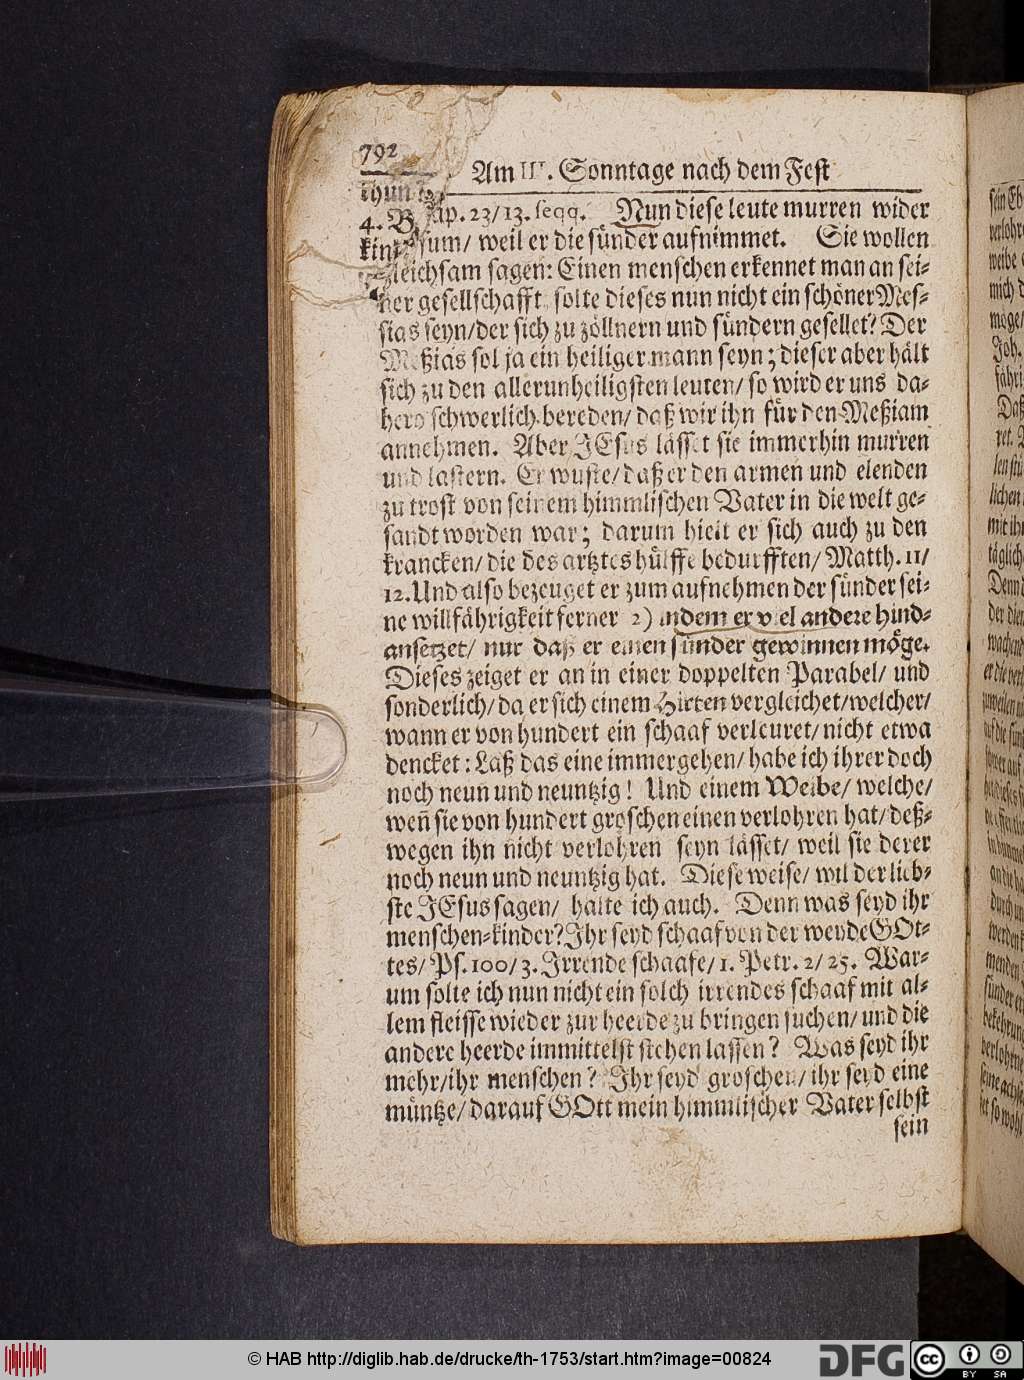 792
Am III. Sonntage nach dem Fest
thun
4. B
kin
Kap. 23/13. seqq. Nun diese leute murren wider
sum/ weil er die sünder aufnimmet. Sie wollen
gleichsam sagen: Einen menschen erkennet man an sei-
ner gesellschafft, solte dieses nun nicht ein schöner Mes-
sias seyn/der sich zu zöllnern und sündern gesellet? Der
Meßias sol ja ein heiliger mann seyn; dieser aber hält
sich zu den allerunheiligsten leuten/ so wird er uns da-
hero schwerlich bereden/ daß wir ihn für den Meßiam
annehmen. Aber JEsus lässet sie immerhin murren
und lästern. Er wuste/ daß er den armen und elenden
zu trost von seinem himmlischen Vater in die welt ge-
sandt worden war; darum hielt er sich auch zu den
krancken/ die des artztes hülffe bedurfften/ Matth. 11/
12. Und also bezeuget er zum aufnehmen der sünder sei-
ne willfährigkeit ferner 2) indem er viel andere hind-
ansetzet/ nur daß er einen sünder gewinnen möge.
Dieses zeiget er an in einer doppelten Parabel/ und
sonderlich/ da er sich einem Hirten vergleichet/welcher/
wann er von hundert ein schaaf verleuret/ nicht etwa
dencket: Laß das eine immer gehen/ habe ich ihrer doch
noch neun und neuntzig! Und einem Weibe/ welche/
weñ sie von hundert groschen einen verlohren hat/ deß-
wegen ihn nicht verlohren seyn lässet/ weil sie derer
noch neun und neuntzig hat. Diese weise/ wil der lieb-
ste JEsus sagen/ halte ich auch. Denn was seyd ihr
menschen-kinder? Ihr seyd schaaf von der weyde GOt-
tes/ Ps. 100/3. Irrende schaafe/ 1. Petr. 2/25. War-
um solte ich nun nicht ein solch irrendes schaaf mit al-
lem fleisse wieder zur heerde zu bringen suchen/ und die
andere heerde immittelst stehen lassen? Was seyd ihr
mehr/ihr menschen? Ihr seyd groschen/ ihr seyd eine
müntze/ darauf GOtt mein himmlischer Vater selbst
sein
sein Eb
verlohr
weibe
mich d
möge/
Joh.
Daß
ret.
lichen
mit ih
täglich
Denn
der die
© HAB http://diglib.hab.de/drucke/th-1753/start.htm?image=00824
DFG
cc
BY SA